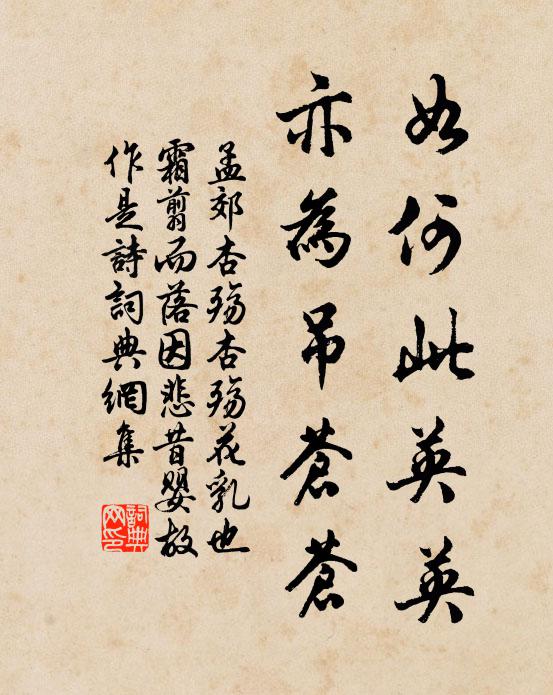 如何此英英
亦為吊蒼蒼
孟郊杏殤杏殤花乳也
霜翦而落因悲昔嬰故
作是詩詞典網集
詞典
网印